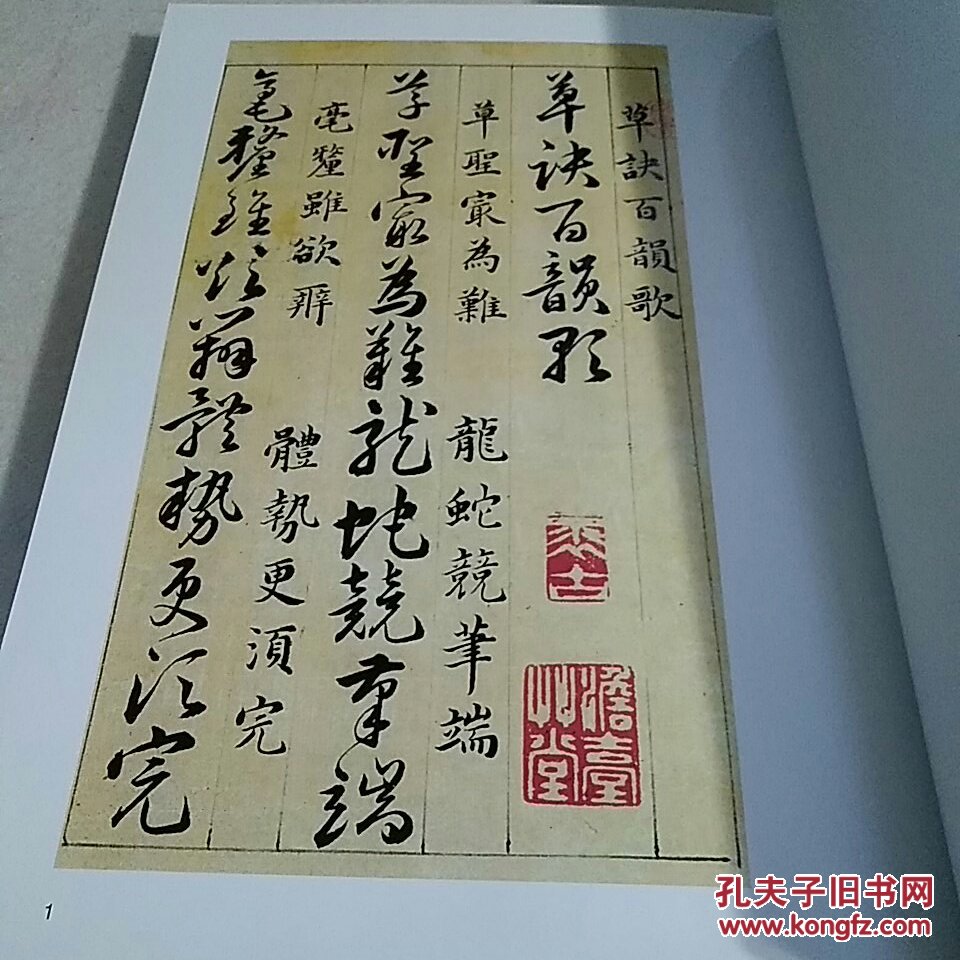 草訣百韻歌
草訣百韻歌
草聖㝡為難 龍蛇競筆端
草聖㝡為難龍蛇競筆端
毫釐雖欲辨 體勢更須完
毫釐雖欲辨體勢更須完
澹臺
艸堂
1
孔夫子旧书网
www.kongfz.com